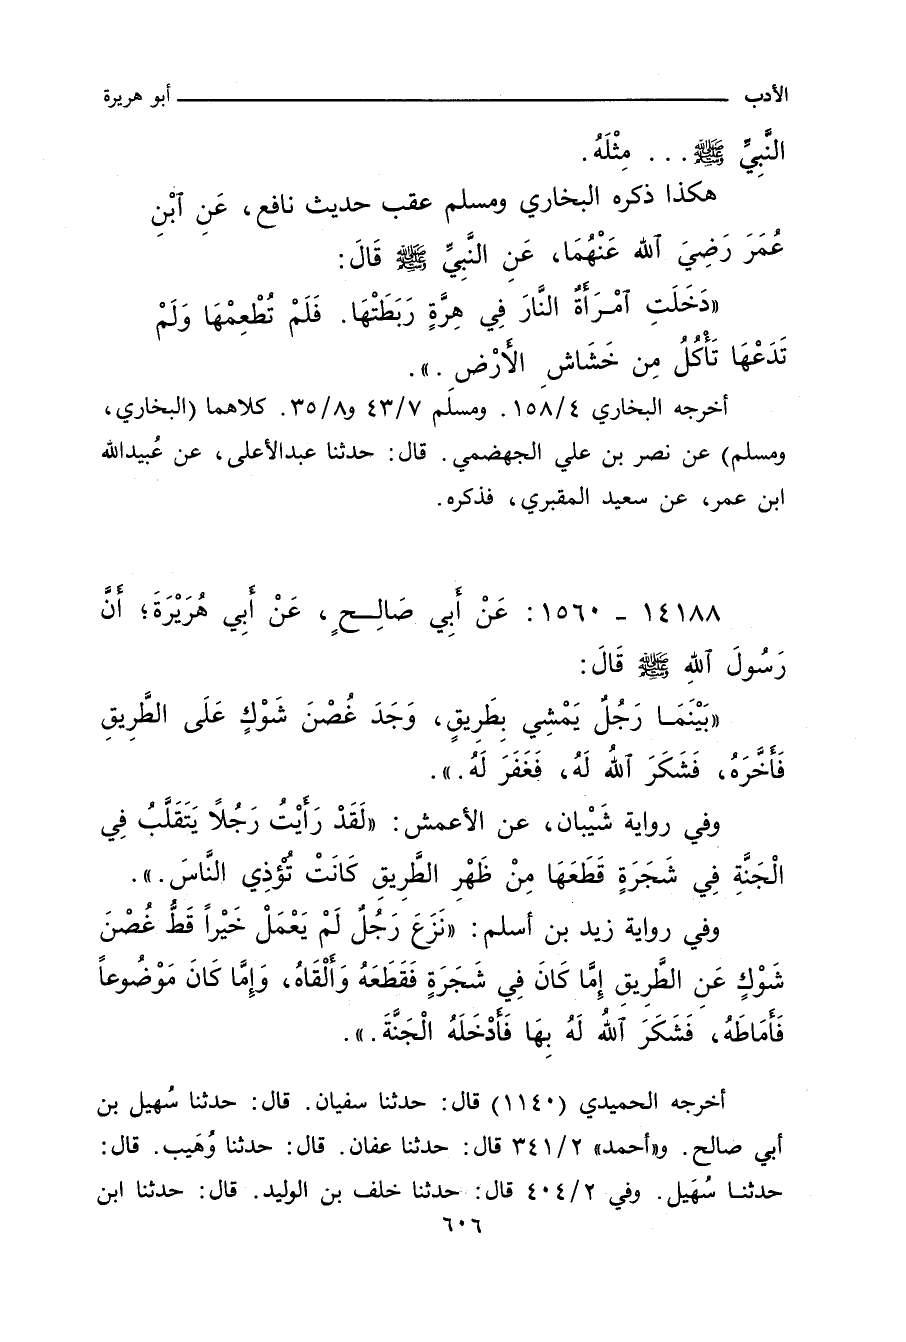 الأدب ــــــــــــــــــــ أبو هريرة
النَّبِيِّ ﷺ... مِثْلَهُ.
هكذا ذكره البخاري ومسلم عقب حديث نافع، عَنِ ٱبْنِ
عُمَرَ رَضِيَ ٱللهُ عَنْهُمَا، عَنِ النَّبِيِّ ﷺ قَالَ:
«دَخَلَتِ ٱمْرَأَةٌ النَّارَ فِي هِرَّةٍ رَبَطَتْهَا. فَلَمْ تُطْعِمْهَا وَلَمْ
تَدَعْهَا تَأْكُلُ مِن خَشَاشِ الأَرْضِ.».
أخرجه البخاري ١٥٨/٤. ومسلم ٤٣/٧ و٣٥/٨. كلاهما (البخاري،
ومسلم) عن نصر بن علي الجهضمي. قال: حدثنا عبدالأعلى، عن عُبيدالله
ابن عمر، عن سعيد المقبري، فذكره.
١٤١٨٨ - ١٥٦٠: عَنْ أَبِي صَالِحٍ، عَنْ أَبِي هُرَيْرَةَ؛ أَنَّ
رَسُولَ ٱللهِ ﷺ قَالَ:
«بَيْنَمَا رَجُلٌ يَمْشِي بِطَرِيقٍ، وَجَدَ غُصْنَ شَوْكٍ عَلَى الطَّرِيقِ
فَأَخَّرَهُ، فَشَكَرَ ٱللهُ لَهُ، فَغَفَرَ لَهُ.».
وفي رواية شَيْبان، عن الأعمش: «لَقَدْ رَأَيْتُ رَجُلاً يَتَقَلَّبُ فِي
الْجَنَّةِ فِي شَجَرَةٍ قَطَعَهَا مِنْ ظَهْرِ الطَّرِيقِ كَانَتْ تُؤْذِي النَّاسَ.».
وفي رواية زيد بن أسلم: «نَزَعَ رَجُلٌ لَمْ يَعْمَلْ خَيْراً قَطُّ غُصْنَ
شَوْكٍ عَنِ الطَّرِيقِ إِمَّا كَانَ فِي شَجَرَةٍ فَقَطَعَهُ وَأَلْقَاهُ، وَإِمَّا كَانَ مَوْضُوعاً
فَأَمَاطَهُ، فَشَكَرَ ٱللهُ لَهُ بِهَا فَأَدْخَلَهُ الْجَنَّةَ.».
أخرجه الحميدي (١١٤٠) قال: حدثنا سفيان. قال: حدثنا سُهيل بن
أبي صالح. و«أحمد» ٣٤١/٢ قال: حدثنا عفان. قال: حدثنا وُهَيب. قال:
حدثنا سُهَيل. وفي ٤٠٤/٢ قال: حدثنا خلف بن الوليد. قال: حدثنا ابن
٦٠٦